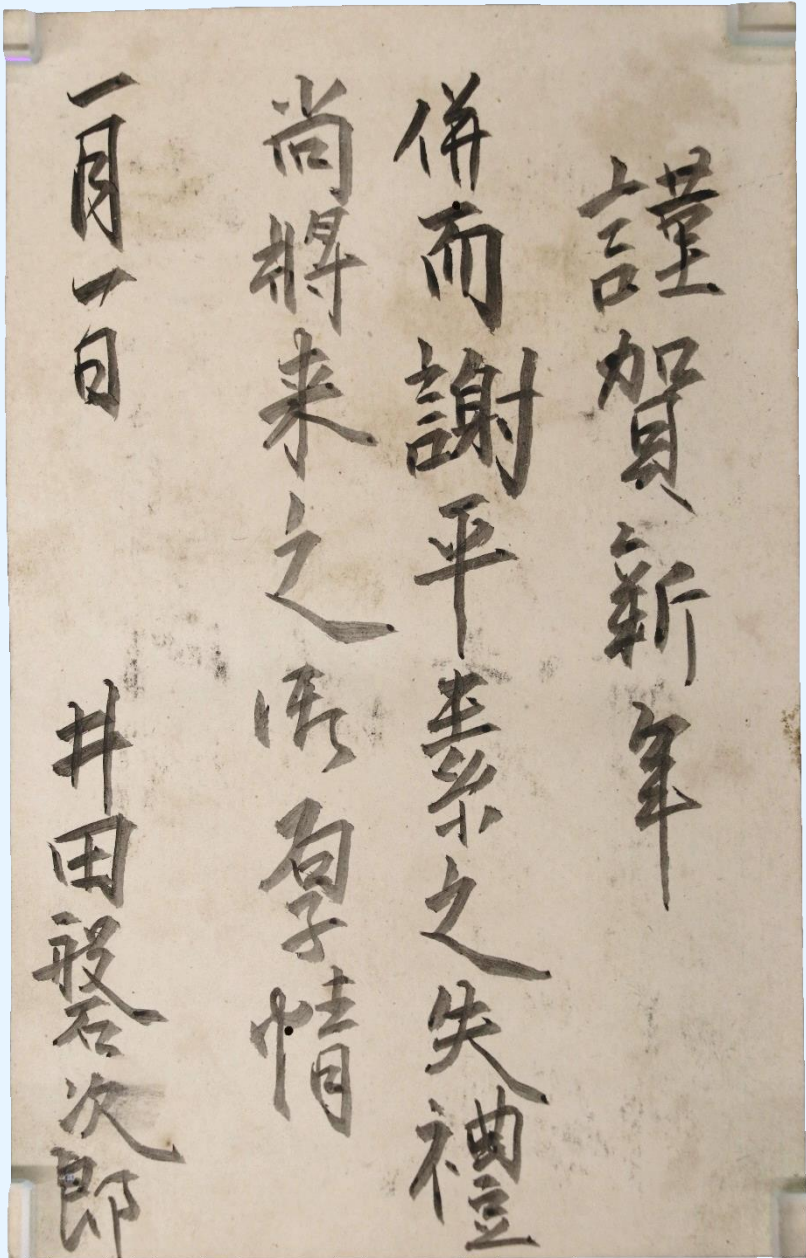 謹賀新年
併而謝平素之失禮
尚將来之御厚情
一月一日 井田磐次郎